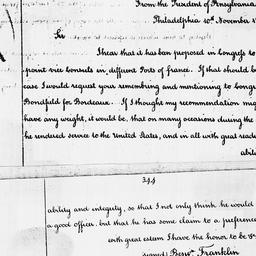 From the President of Pensylvania
Philadelphia 10th November
Sir
I hear that it has been proposed in Congress to
point vice Consuls in different Ports of france. If that should b
case I would request your remembring and mentioning to Congr
Bondfield for Bordeaux. If I thought my recommendation migh
have any weight, it would be, that on many occasions during the
he rendered service to the United States, and in all with great ready
abili
344
ability and integrity, so that I not only think he would
a good officer, but that he has some claim to a preference
with great esteem I have the honor to be
signed) Benjn. Franklin